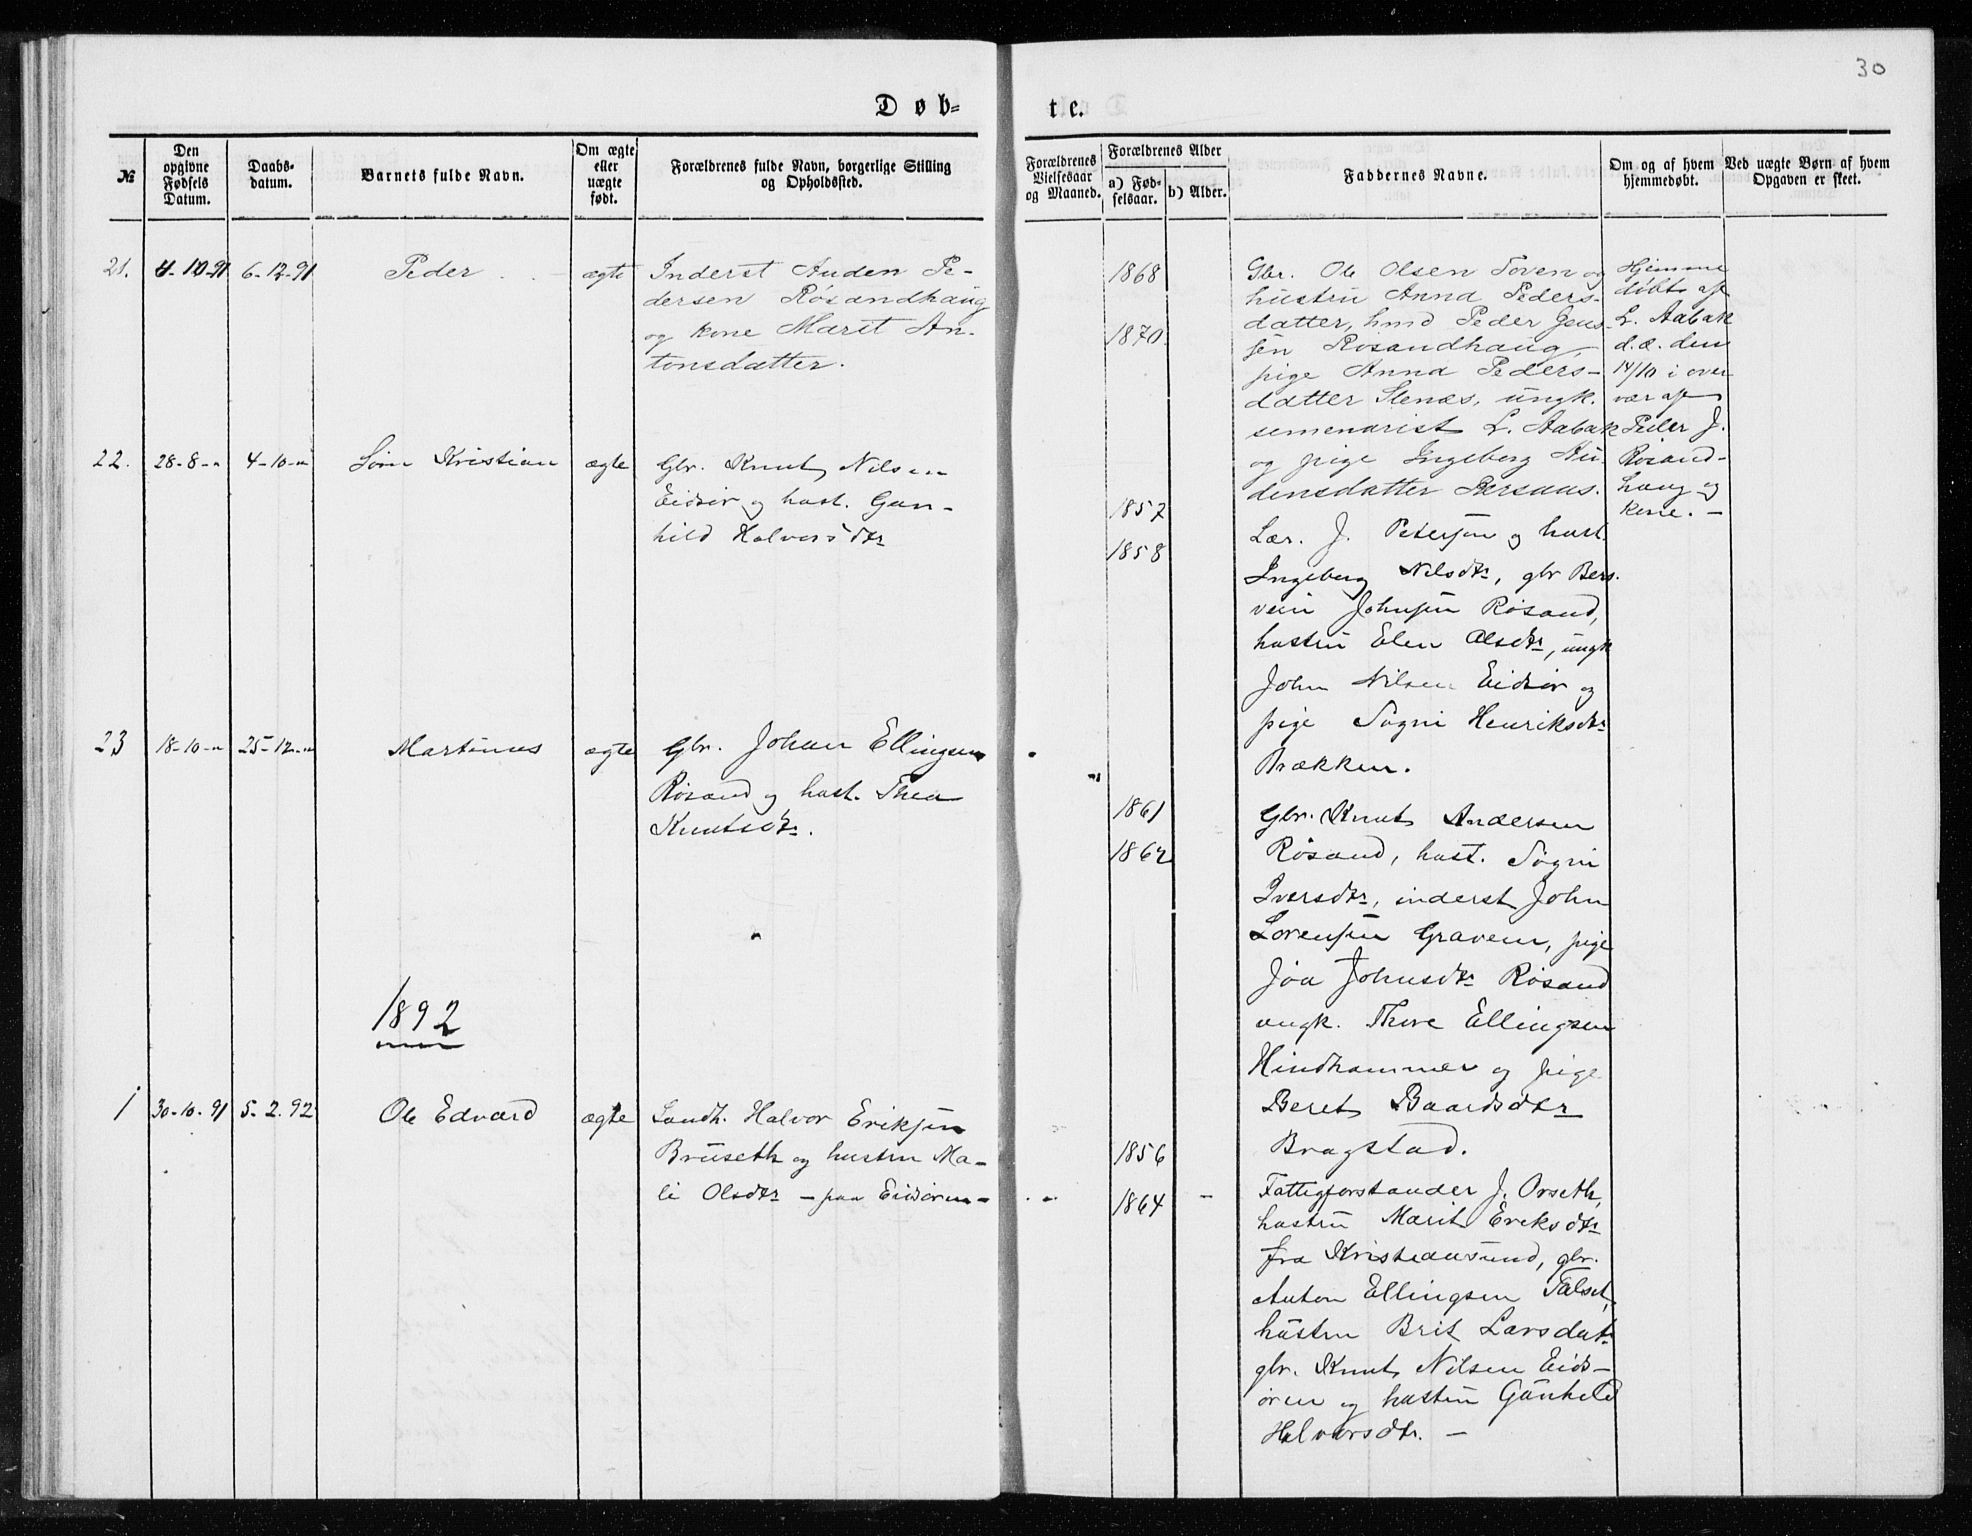 30
Døb-
te.
№
Den opgivne Fødsels Datum.
Daabs-datum.
Barnets fulde Navn.
Om ægte eller uægte født.
Forældrenes fulde Navn, borgerlige Stilling og Opholdssted.
Forældrenes Vielsesaar og Maaned.
Forældrenes Alder
a) Fød-selsaar.
b) Alder.
Faddernes Navne.
Om og af hvem hjemmedøbt.
Ved uægte Børn af hvem Opgaven er skeet.
21.
4-10-91
6-12-91
Peder
ægte
Inderst Auden Pe-
dersen Røsandhaug
og kone Marit An-
tonsdatter.
1868
1870.
Gbr. Ole Olsen Toven og
hustru Anna Peders-
datter, hmd Peder Jens-
sen Rosandhaug,
pige Anna Peders-
datter Stenes, ungk.
semenarist L. Aabak
og pige Ingeborg Au-
densdatter Bersaas.
Hjemme
døbt af
L. Aabak
d.æ. den
14/10 i over
vær af
Peder J.
Rosand-
haug og
kone. -
22.
28-8-"
4-10-"
Sørn Kristian
ægte
Gbr. Knut Nilsen
Eidsør og hust. Gun-
hild Halvorsdtr
1857
1858
Lær. J. Petersen og hust.
Ingeborg Nilsdtr, gbr Bers-
vein Johnsen Røsand,
hustru Elen Olsdtr, ungk
John Nilsen Eidsør og
pige Sogni Henriksdtr
Brækken.
23
18-10-"
25-12-"
Martinus
ægte
Gbr. Johan Ellingsen
Røsand og hust. Thea
Knutsdtr.
1861
1862
Gbr. Knut Andersen
Røsand, hust. Sogni
Iversdtr, inderst John
Lorensen Gravem, pige
Joa Johnsdtr Røsand
ungk. Thore Ellingsen
Hindhammer og pige
Beret Baardsdtr
Bragstad.
1892
1
30-10-91
5-2.92
Ole Edvard
ægte
Landh. Halvor Eriksen
Bruseth og hustru Ma-
li Olsdtr - paa Eidsøren-
1856
1864
Fattigforstander J. Orseth,
hustru Marit Ereksdtr
fra Kristiansund, gbr.
Anton Ellingsen Talset,
hustru Brit Larsdatr
gbr. Knut Nilsen Eids-
øren og hustru Gunhild
Halvorsdtr. -